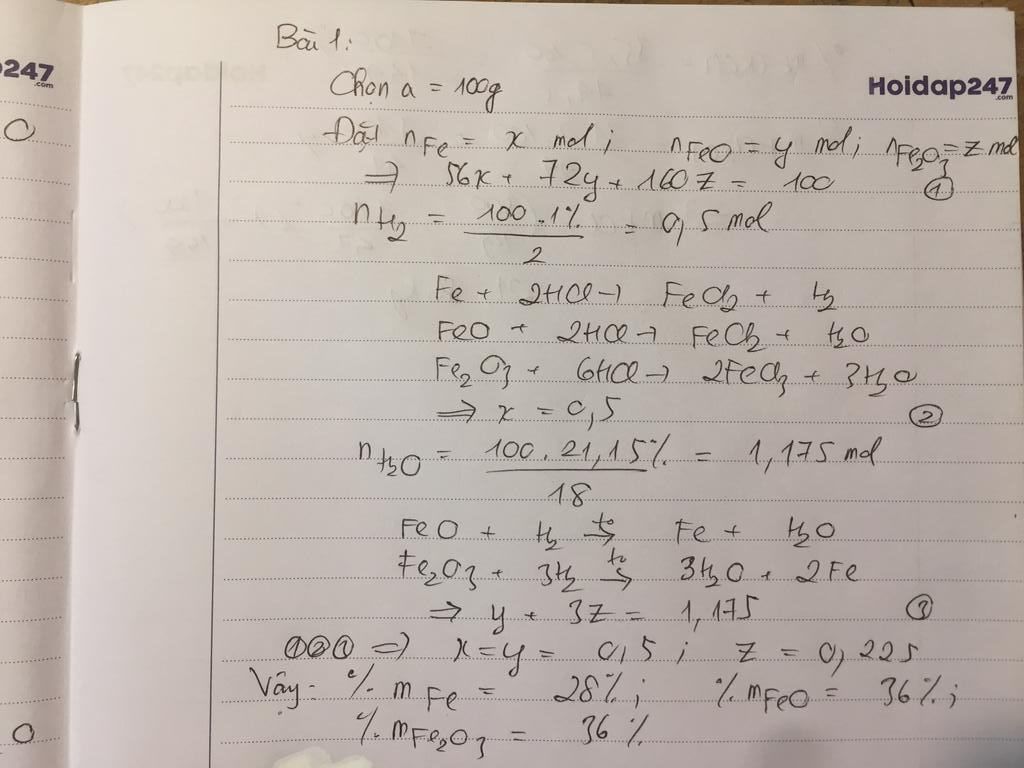 Bài 1:
p247
.com
Hoidap247
.com
Chọn a = 100g
O
Đặt nFe = x mol; nFeO = y mol; nFe2O3 = z mol
=> 56x + 72y + 160z = 100 ①
nH2 = 100.1% / 2 = 0,5 mol
Fe + 2HCl → FeCl2 + H2
FeO + 2HCl → FeCl2 + H2O
Fe2O3 + 6HCl → 2FeCl3 + 3H2O
=> x = 0,5 ②
nH2O = 100.21,15% / 18 = 1,175 mol
FeO + H2 →to Fe + H2O
Fe2O3 + 3H2 →to 3H2O + 2Fe
=> y + 3z = 1,175 ③
①②① => x = y = 0,5; z = 0,225
Vậy: % mFe = 28%; % mFeO = 36%;
O
% mFe2O3 = 36%